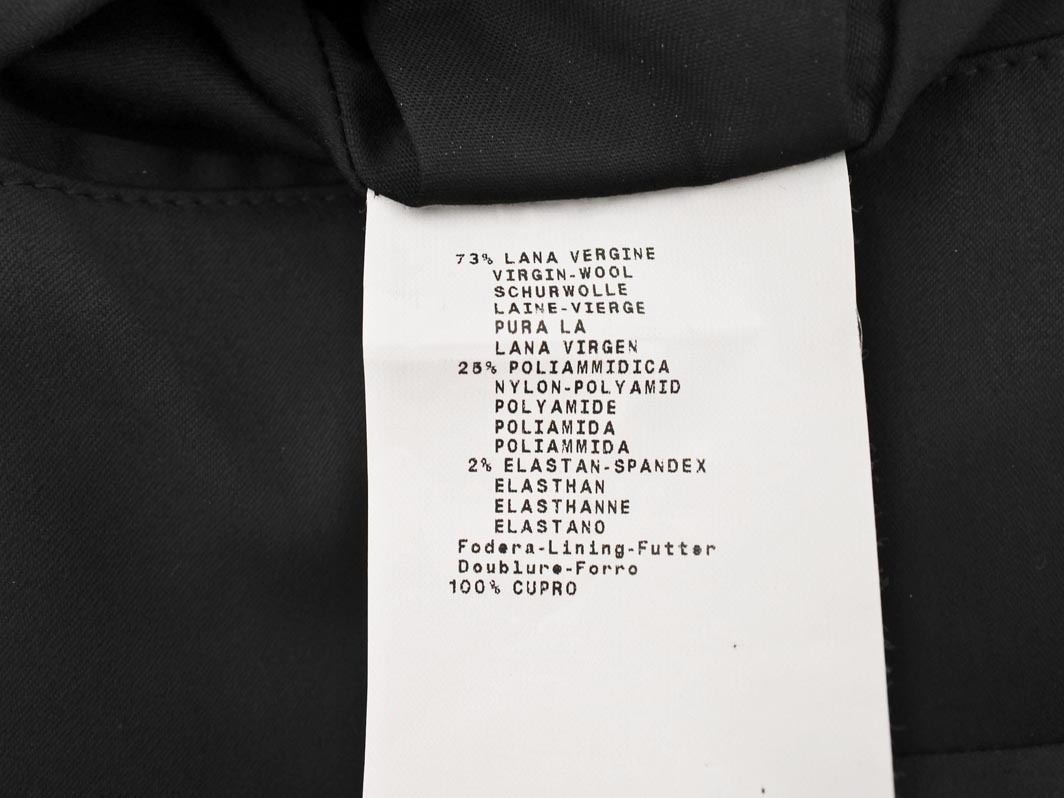 73% LANA VERGINE
VIRGIN-WOOL
SCHURWOLLE
LAINE-VIERGE
PURA LA
LANA VIRGEN
25% POLIAMMIDICA
NYLON-POLYAMID
POLYAMIDE
POLIAMIDA
POLIAMMIDA
2% ELASTAN-SPANDEX
ELASTHAN
ELASTHANNE
ELASTANO
Fodera-Lining-Futter
Doublure-Forro
100% CUPRO